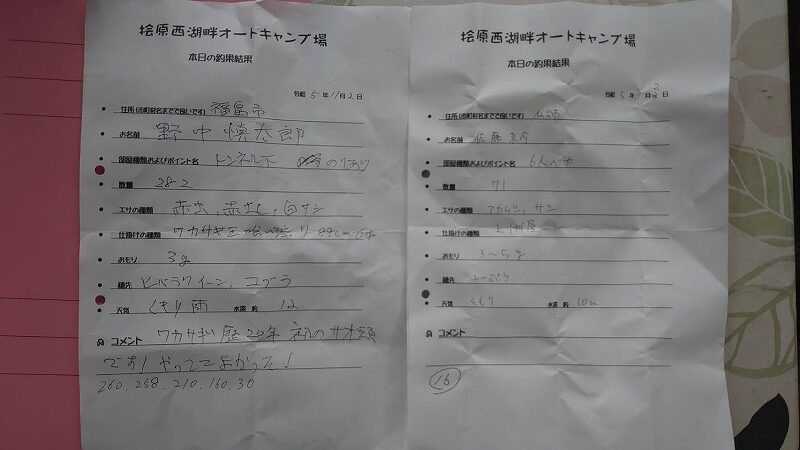 桧原西湖畔オートキャンプ場
本日の釣果結果
令和 5 年 11月 2 日
住所(市町村名までで良いです) 福島市
お名前 野中慎太郎
部屋種類およびポイント名 トンネル下
数量 282
エサの種類 赤虫、赤虫し、白サシ
仕掛けの種類 ワカサギ
おもり 3g
穂先
天気 くもり雨 水深 約 12
コメント ワカサギ歴20年 初の
です! やっててよかった!
260.258.210.160.30
桧原西湖畔オートキャンプ場
本日の釣果結果
令和 5 年 11月 2 日
住所(市町村名までで良いです)
お名前 佐藤
部屋種類およびポイント名 6人ベヤ
数量 71
エサの種類 アカムシ、サシ
仕掛けの種類
おもり 3〜5g
穂先
天気 くもり 水深 約 10m
コメント
16